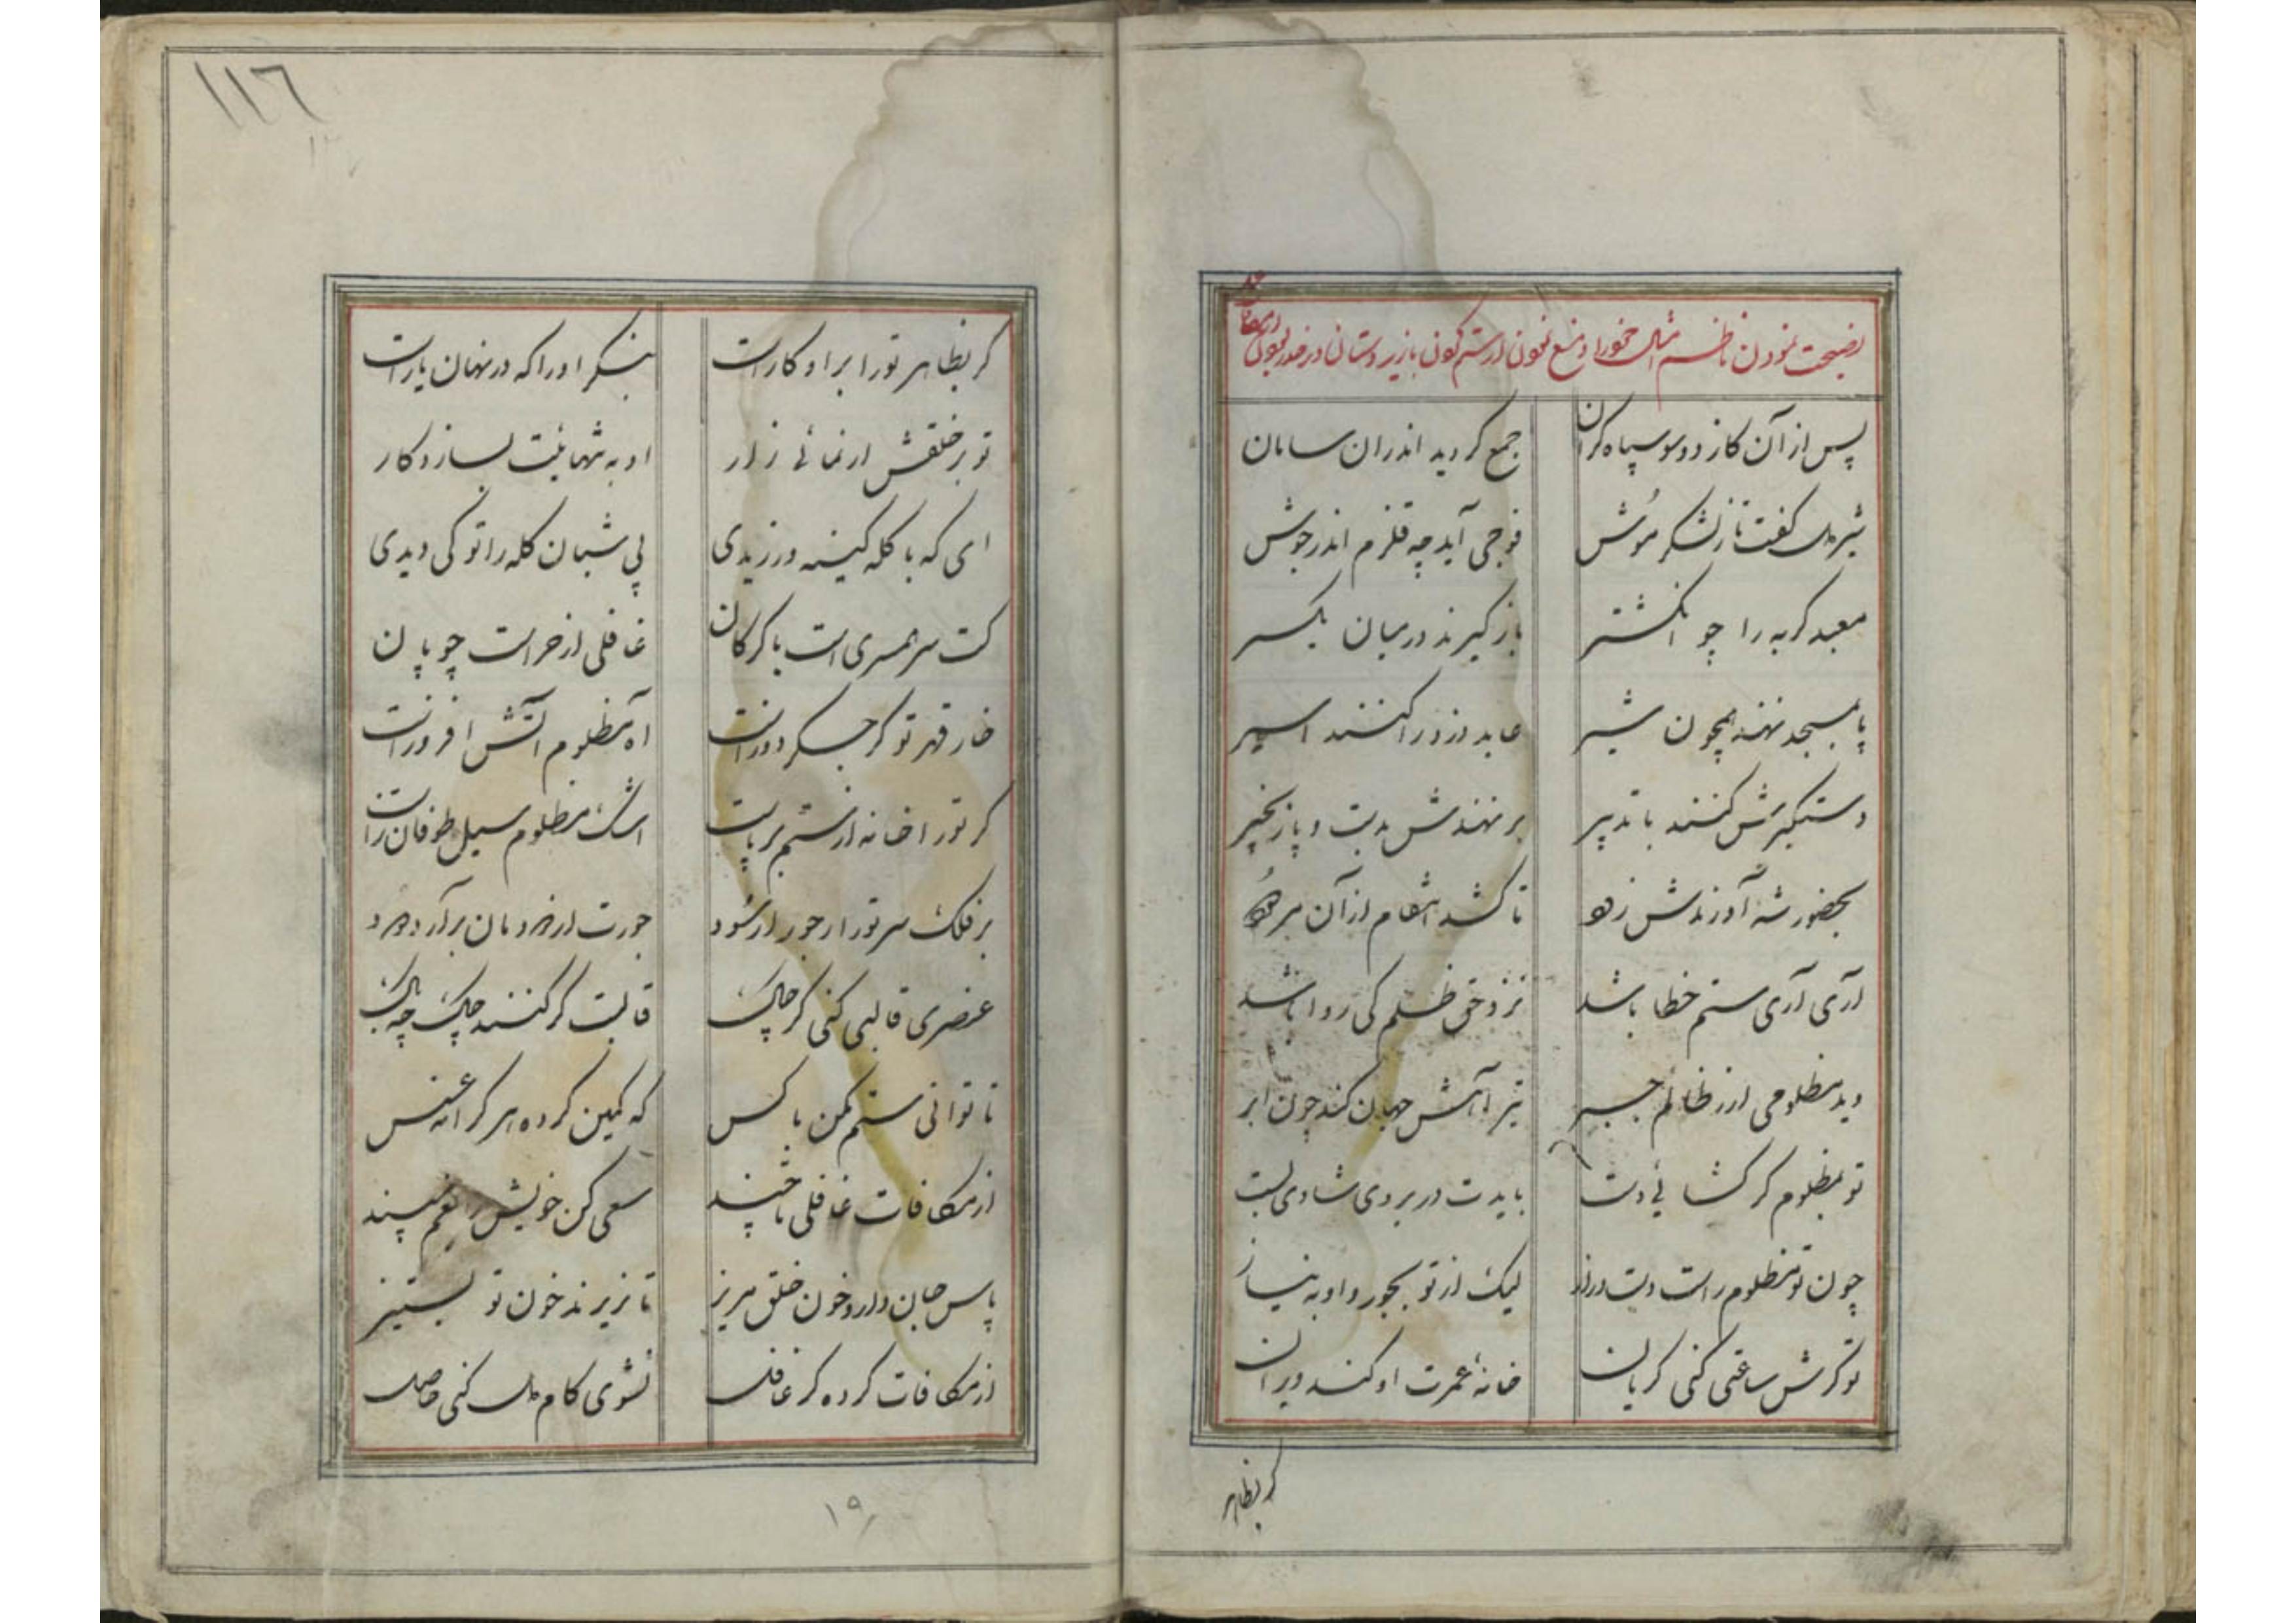 نصیحت نمودن ناظم امثال خود را و منع نمودن از ستم نمودن با زیر دستان و در
پس از آن کاز دو سو سپاه گران جمع گردید اندران سامان
شیردل گفت تا ز لشکر موش فوجی آید چه قلزم اندر جوش
معبد گربه را چو انگشتر باز گیرند در میان یکسر
پا بمسجد نهند همچون شیر عابد دزد را کنند اسیر
دستگیرش کنند با تدبیر بر نهندش بدست و پا زنجیر
بحضور شه آورندش زود تا کشد انتقام از آن
آری آری ستم خطا باشد نزد حق ظلم کی روا باشد
دید مظلومی ار ز ظالم جبر تیر آهش جهان کند چون ابر
تو بمظلوم گر گشائی دست بایدت در بروی شادی بست
چون تو مظلوم راست دست دراز لیک از تو بجور و او به نیاز
تو گرش ساعتی کنی گریان خانۀ عمرت او کند ویران
گر بظاهر
۱۱٦
گر بظاهر تو را بر او کار است بنگر او را که در نهان یار است
تو بر خلقش ار نمائی زار او به تنهائیت بسازد کار
ای که با گله کینه ورزیدی پی شبان گله را تو کی دیدی
کت سر همسری است با گرگان غافلی از حراست چوپان
خار قهر تو گر جگر دوز است آه مظلوم آتش افروز است
گر تو را خانه از ستم بر پاست اشک مظلوم سیل طوفان زاست
بر فلک سر تو را ز جور ار سود جورت از دودمان برآرد دود
عنصری قالبی کنی گر چاک قالبت گر کنند چاک چه باک
تا توانی ستم مکن با کس که کمین کرده هر کرانه عسس
از مکافات غافلی تا چند سعی کن خویش را بغم مپسند
پاس جان دار و خون خلق مریز تا نریزند خون تو بستیز
از مکافات کرده گر غافل نشوی کام دل کنی حاصل
۱۹